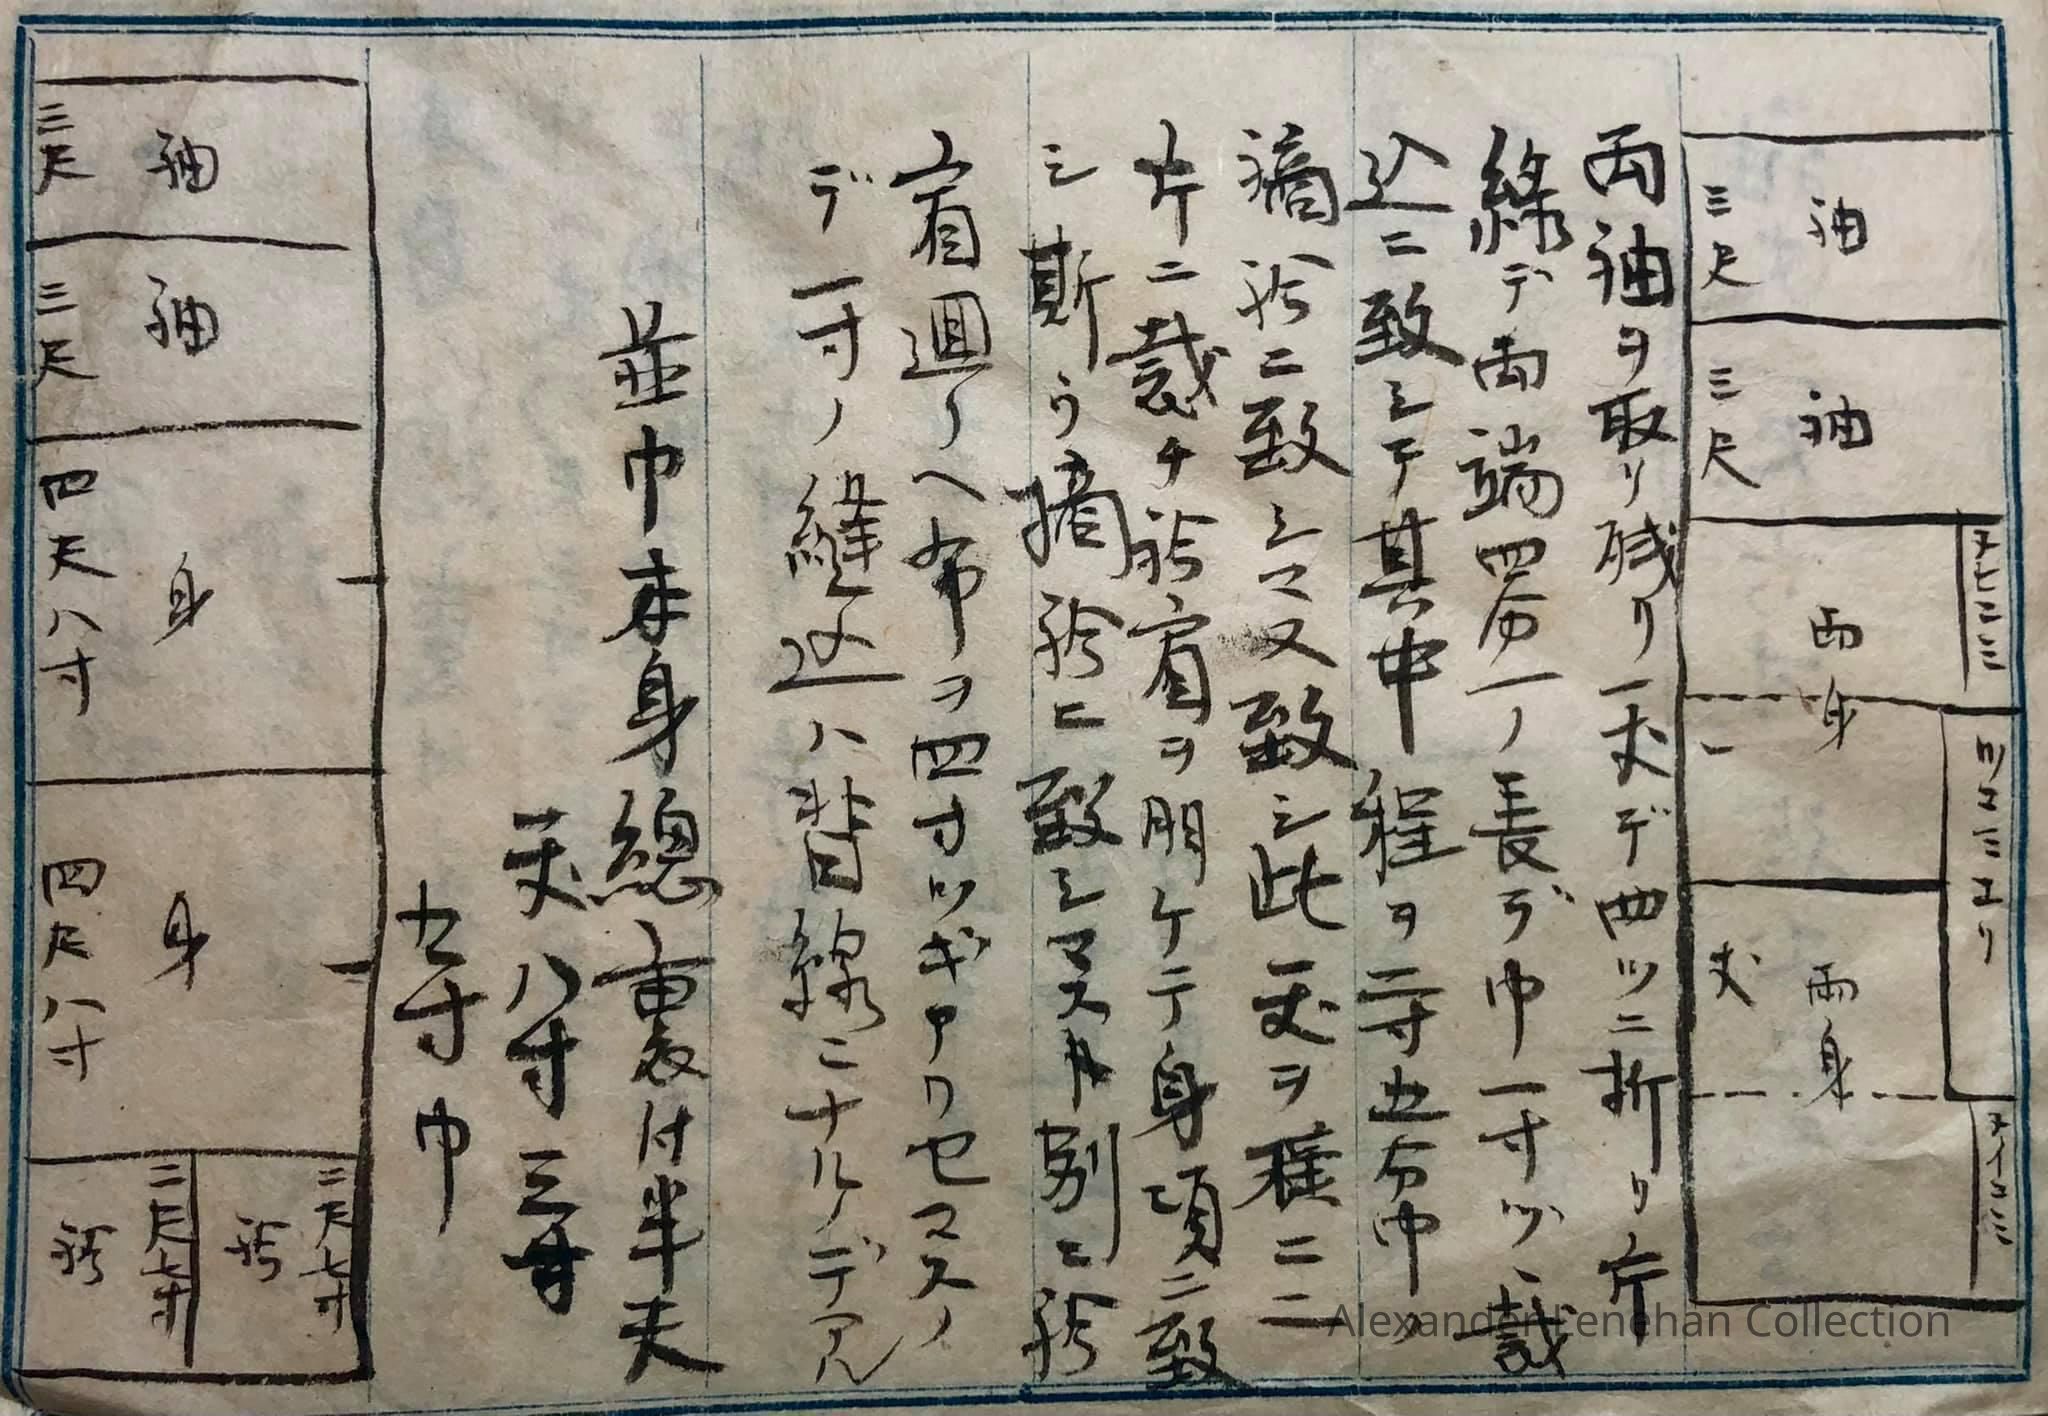 袖
三尺
袖
三尺
両身
両身
一
丈
ヌヒコミ
ヌイコミ
両袖ヲ取リ残リ一丈デ四ツニ折リ片
縁デ両端四分一ノ長デ巾一寸ヅヽ裁
込ニ致シテ其中程ヲ二寸五分巾ノ
摘袵ニ致シマス又致シ此一丈ヲ種ニ二
片ニ裁チ袵肩ヲ明ケテ身項ニ致
シ斯ウ摘袵ニ致シマスガ別ニ袵
肩廻リヘ布ヲ四寸ツギアワセマスノ
デ一寸ノ縫込ハ背線ニナルノデアル
並巾本身總裏付半天
一丈八寸三寸
九寸巾
袖
三尺
袖
三尺
身
四尺八寸
身
四尺八寸
袵
二尺七寸
袵
二尺七寸
Alexander Lenehan Collection